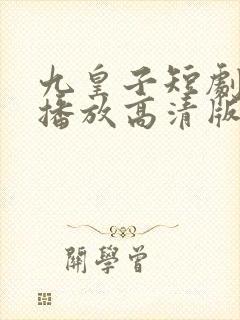 九皇子短劇
播放高清版
開學曾